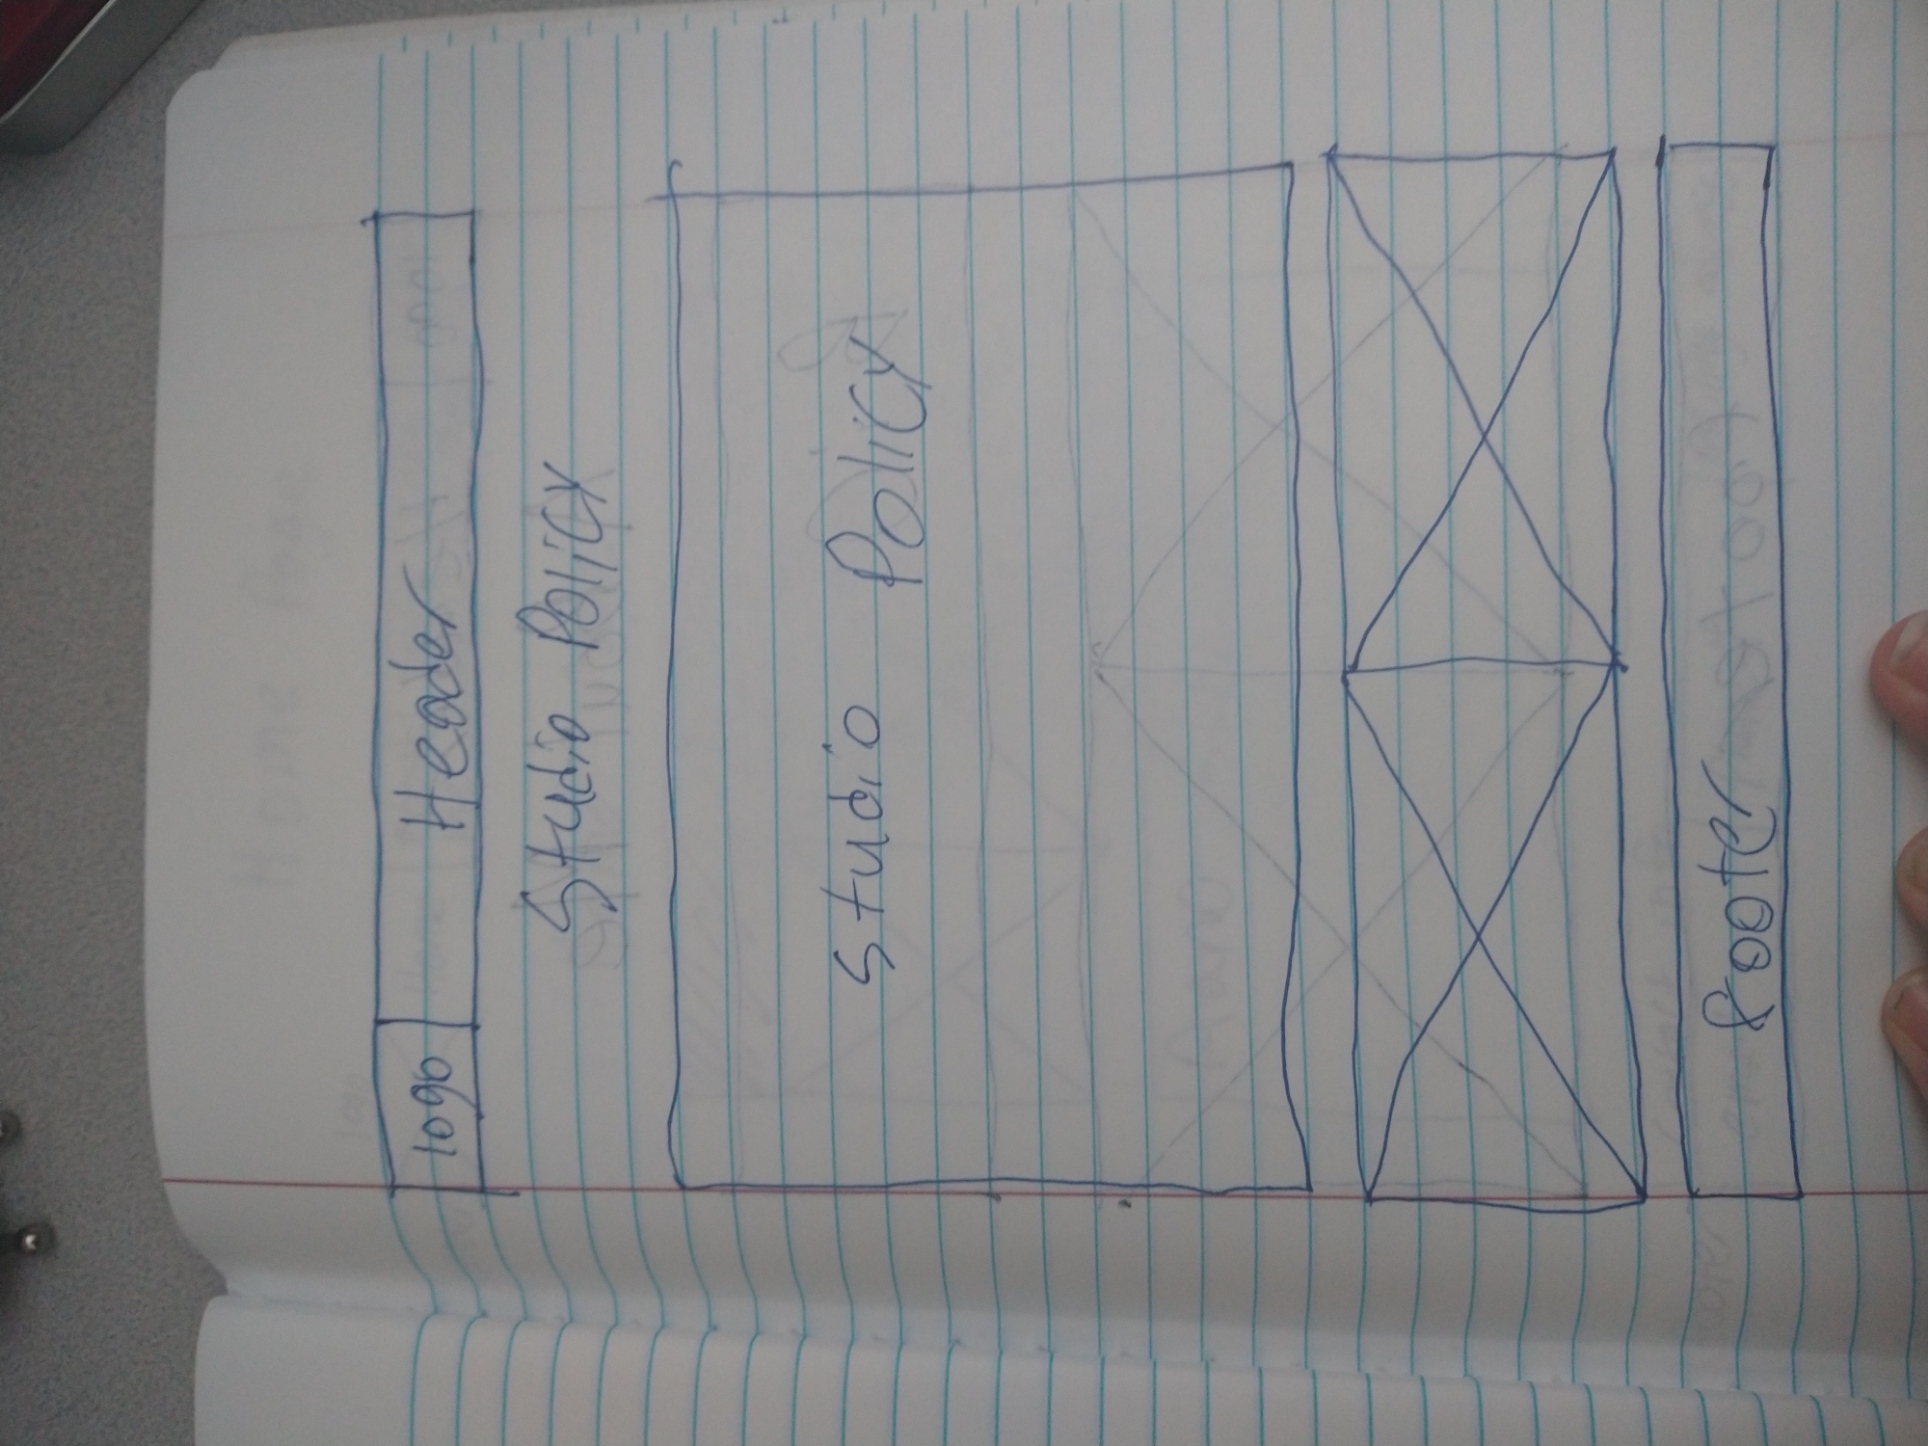 Home Page
logo Header
Studio Policy
Studio Policy
footer